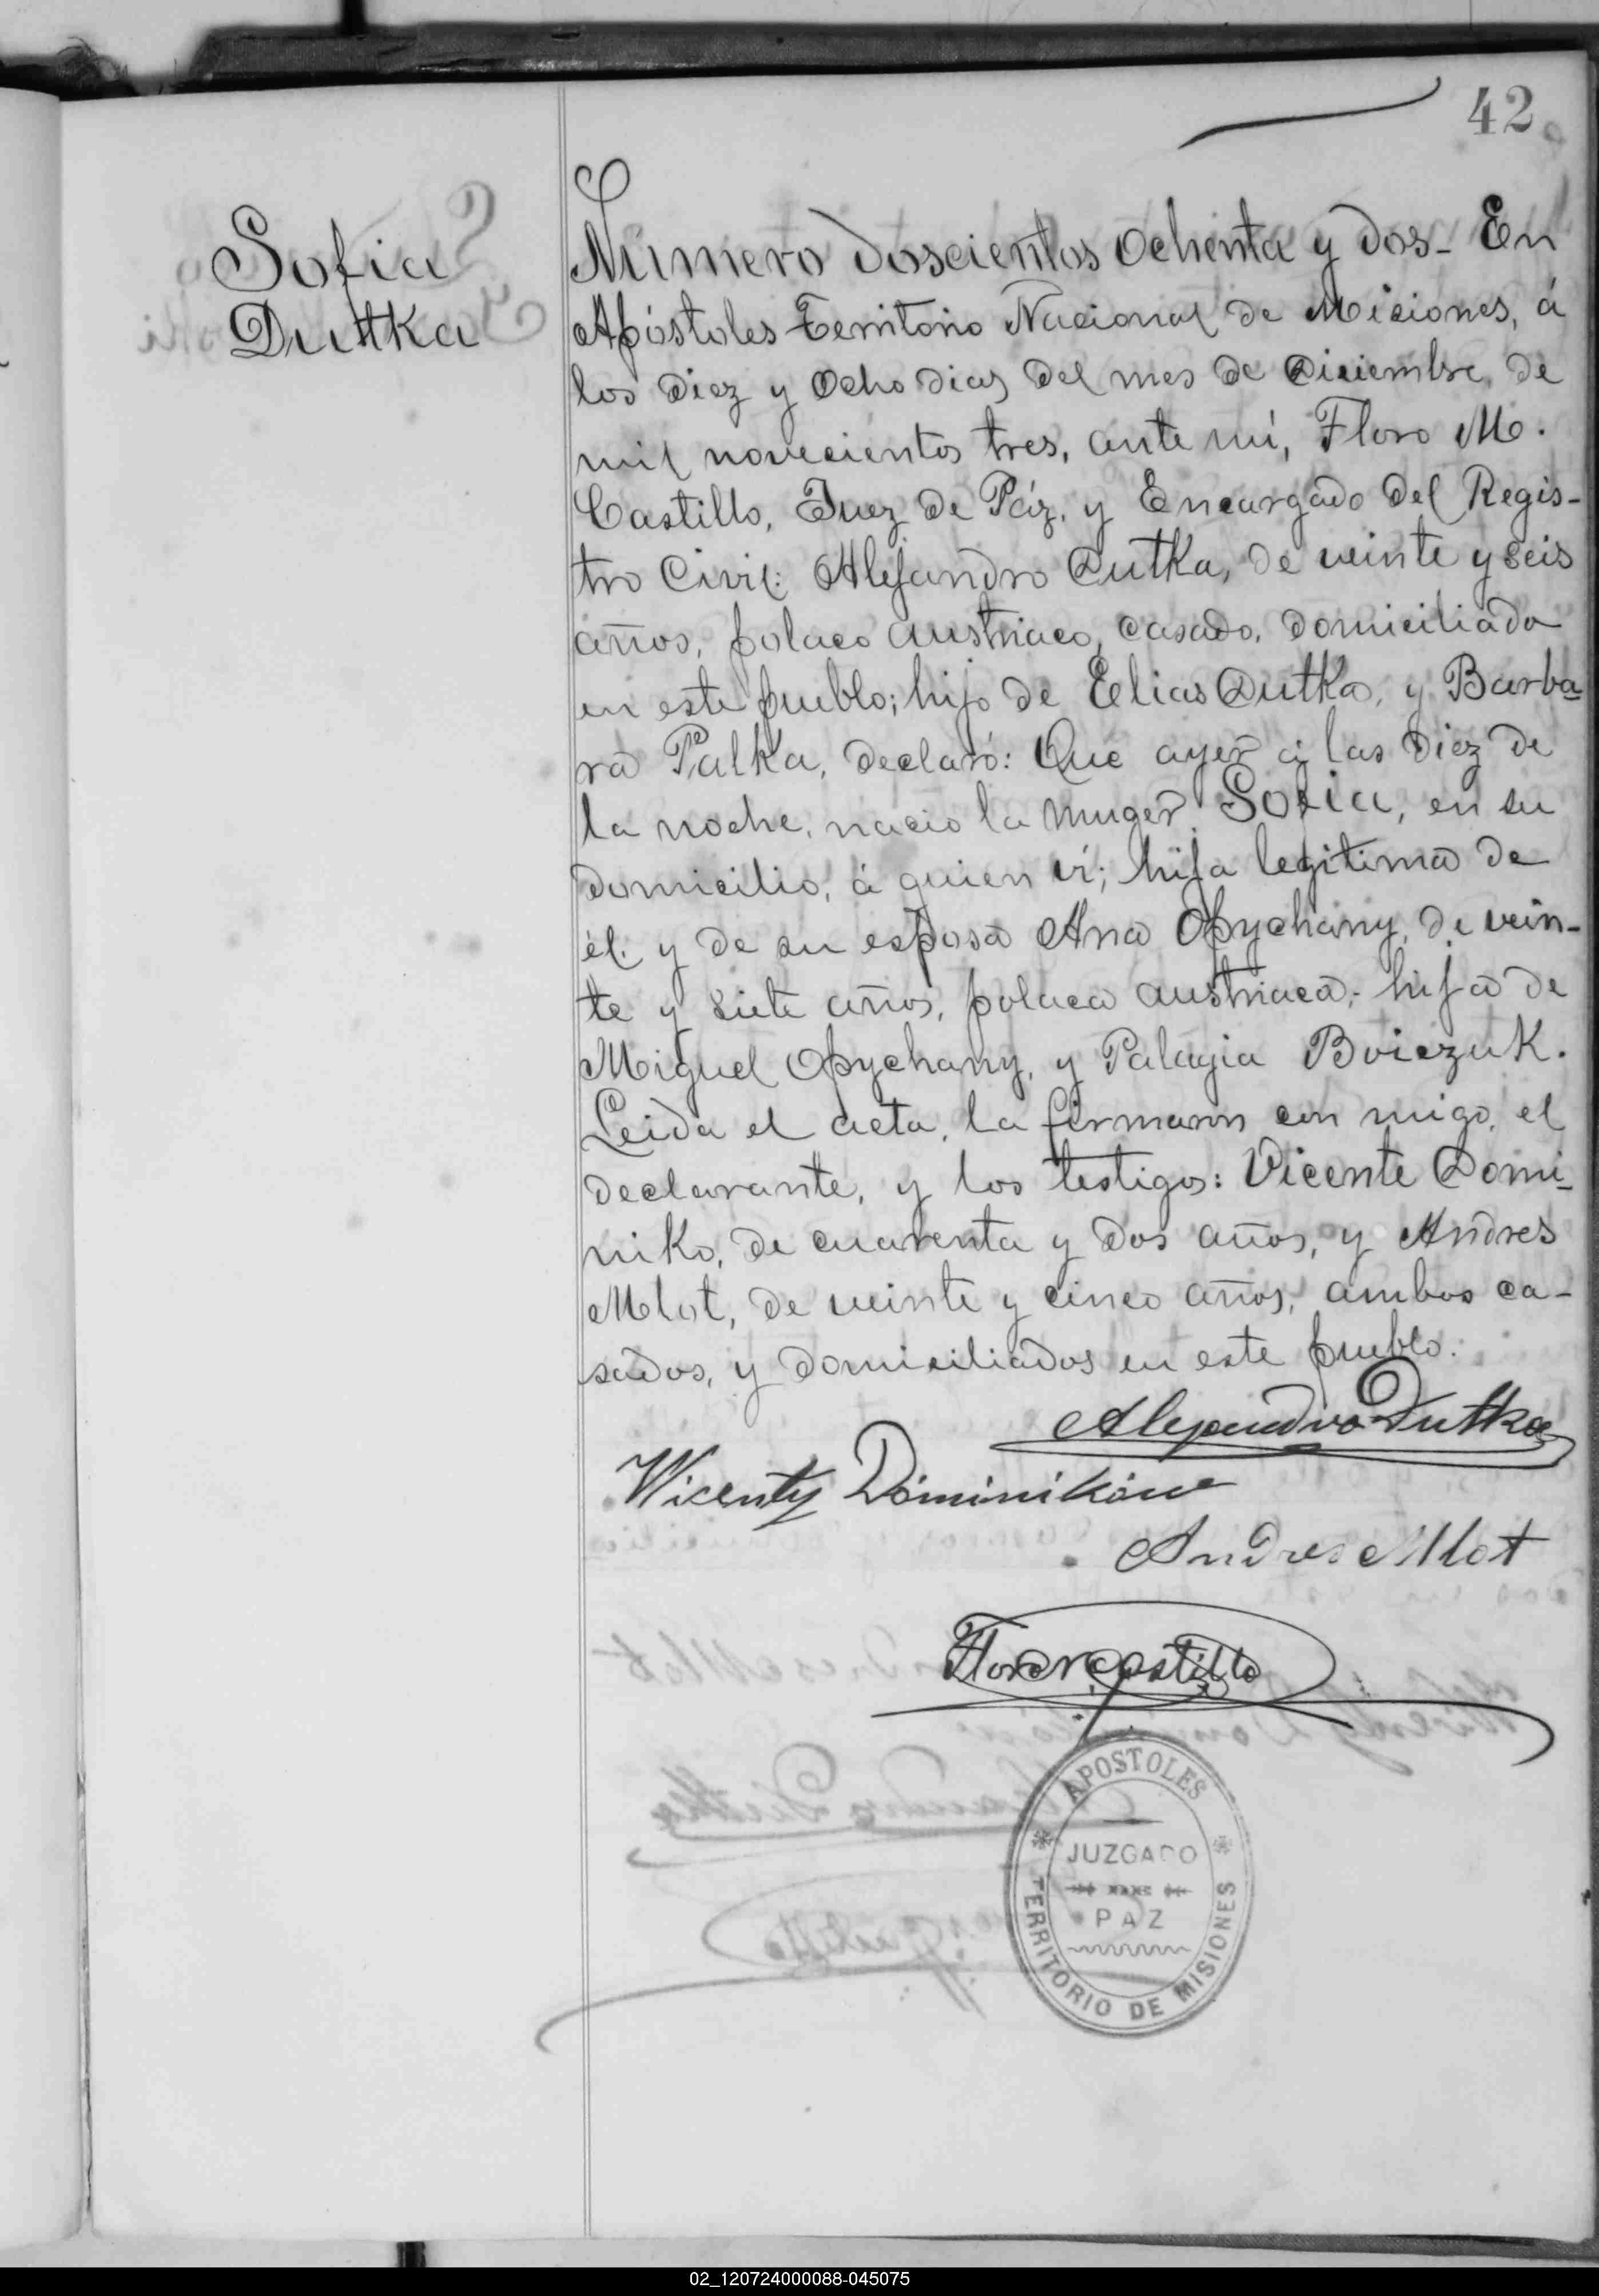 42
Sofia
Dutka
Número doscientos ochenta y dos- En
Apóstoles Territorio Nacional de Misiones, á
los diez y ocho dias del mes de Diciembre de
mil novecientos tres, ante mí, Floro M.
Castillo, Juez de Páz, y Encargado del Regis-
tro Civil: Alejandro Dutka, de veinte y seis
años, polaco austriaco, casado, domiciliado
en este pueblo; hijo de Elias Dutka, y Barba-
ra Palka, declaró: Que ayer á las diez de
la noche, nació la muger Sofia, en su
domicilio, á quien ví; hija legitima de
él y de su esposa Ana Opychany, de vein-
te y siete años, polaca austriaca; hija de
Miguel Opychany, y Palagia Boiczuk.
Leida el acta, la firmaron con migo, el
declarante, y los testigos: Vicente Domi-
niko, de cuarenta y dos años, y Andres
Mlot, de veinte y cinco años, ambos ca-
sados, y domiciliados en este pueblo.
Alejandro Dutka
Wicenty Dominików
Andres Mlot
Floro M Castillo
APOSTOLES
JUZGADO
PAZ
TERRITORIO DE MISIONES
02_120724000088-045075